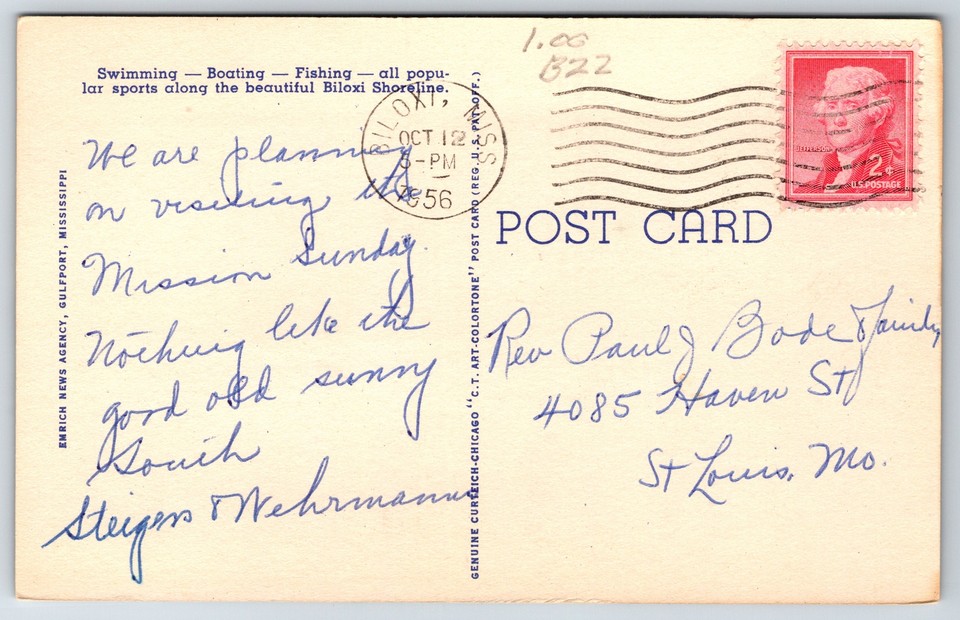 1.00
B22
Swimming — Boating — Fishing — all popu-
lar sports along the beautiful Biloxi Shoreline.
BILOXI, MISS
OCT 12
5-PM
1956
JEFFERSON
2¢
U.S. POSTAGE
POST CARD
We are planning
on visiting the
Mission Sunday.
Nothing like the
good old sunny
South
Steigers & Wehrmanns
Rev Paul J Bode & family
4085 Haven St
St Louis, Mo.
EMRICH NEWS AGENCY, GULFPORT, MISSISSIPPI
GENUINE CURTEICH-CHICAGO "C.T. ART-COLORTONE" POST CARD (REG. U.S. PAT. OFF.)